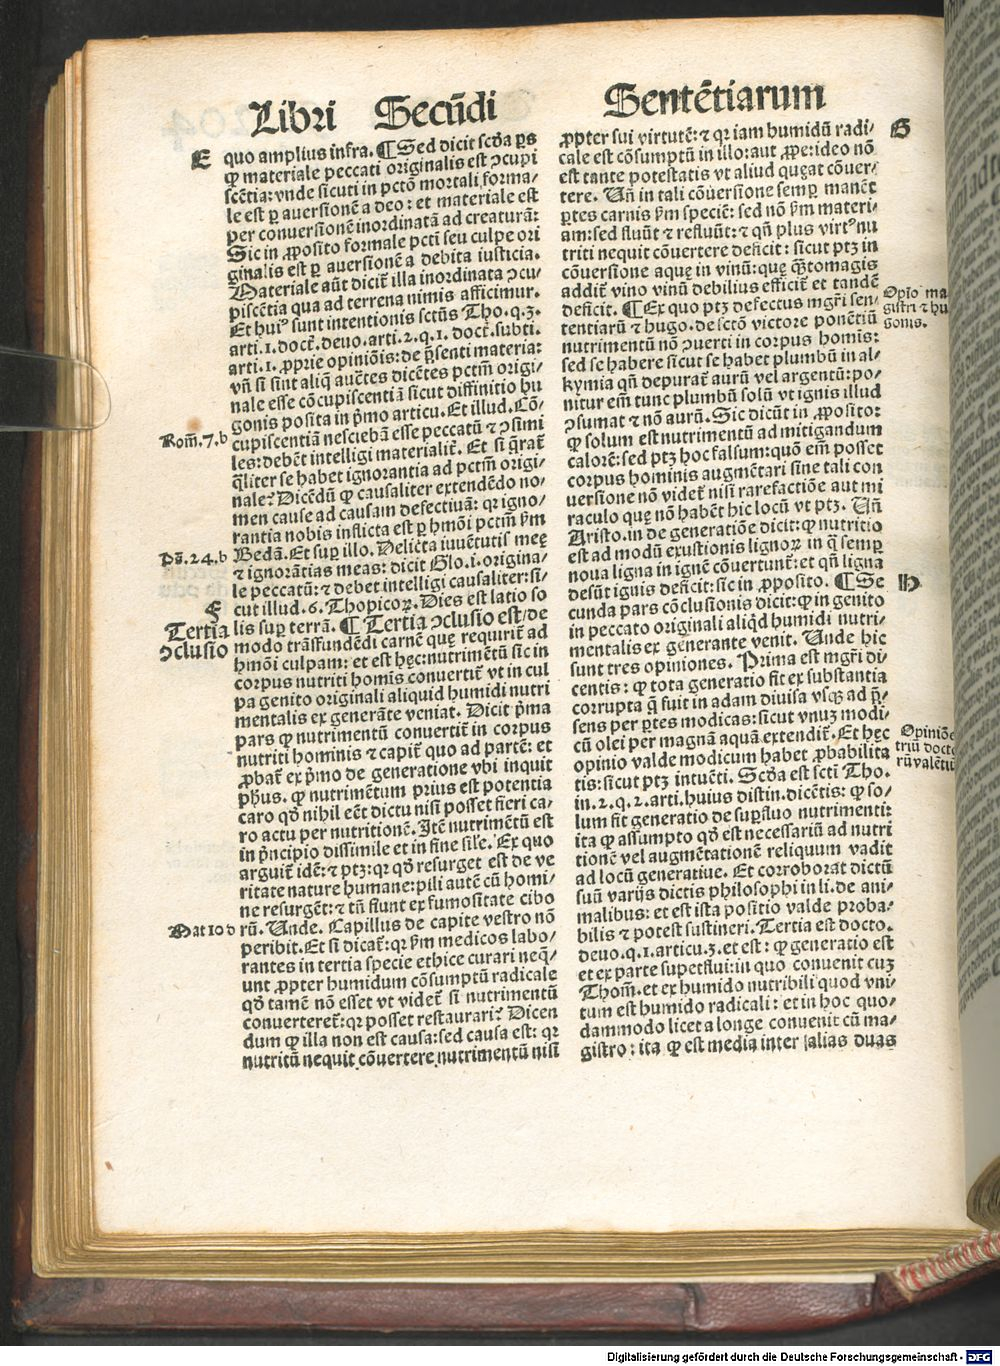 Libri Secūdi Sentētiarum
E
quo amplius infra. ¶ Sed dicit scḋa ꝑs
ꝙ materiale peccati originalis est ↄcupi
scētia: vnde sicuti in pctō mortali forma/
le est ꝑ auersionē a deo: et materiale est
per conuersionē inordinatā ad creaturā:
Sic in ꝓposito formale pcti seu culpe ori
ginalis est ꝑ auersionē a debita iusticia.
Materiale aūt dicit̄ illa inordinata ↄcu/
piscētia qua ad terrena nimis afficimur.
Et huiꝰ sunt intentionis sctūs Tho. q. 3.
arti. 1. doct̄. deuo. arti. 2. q. 1. doct̄. subti.
arti. 1. ꝓprie opiniōis: de p̄senti materia:
vn̄ si sint aliq̄ auc̄tes dicētes pctm̄ origi/
nale esse cōcupiscentiā sicut diffinitio hu
gonis posita in p̄mo articu. Et illud. Cō/
Rom̄. 7. b
cupiscentiā nesciebā esse peccatū ⁊ ↄsimi
les: debēt intelligi materialit̄. Et si q̄rat̄
q̄liter se habet ignorantia ad pctm̄ origi/
nale? Dicēdū ꝙ causaliter extendēdo no/
men cause ad causam defectiuā: qꝛ igno/
rantia nobis inflicta est ꝑ hmōi pctm̄ ẜm
Ps̄. 24. b
Bedā. Et suꝑ illo. Delicta iuuētutis meę
⁊ ignorātias meas: dicit Glo. i. origina/
le peccatū: ⁊ debet intelligi causaliter: si/
F
cut illud. 6. Thopicoꝝ. Dies est latio so
Tertia
ↄclusio
lis suꝑ terrā. ¶ Tertia ↄclusio est/ de
modo trāsfundēdi carnē quę requirit̄ ad
hmōi culpam: et est hęc: nutrimētū sic in
corpus nutriti homis conuertit̄ vt in cul
pa genito originali aliquid humidi nutri
mentalis ex generāte veniat. Dicit p̄ma
pars ꝙ nutrimētum conuertit̄ in corpus
nutriti hominis ⁊ capit̄ quo ad partē: et
ꝓbat̄ ex p̄mo de generatione vbi inquit
ph̄us. ꝙ nutrimētum prius est potentia
caro qḋ nihil eēt dictu nisi posset fieri ca/
ro actu per nutritionē. Itē nutrimētū est
in p̄ncipio dissimile et in fine sil̄e. Ex quo
arguit̄ idē: ⁊ ptꝫ: qꝛ qḋ resurget est de ve
ritate nature humane: pili autē cū homi/
ne resurgēt: ⁊ tn̄ fiunt ex fumositate cibo
Mat 10 d
rū. Unde. Capillus de capite vestro nō
peribit. Et si dicat̄: qꝛ ẜm medicos labo/
rantes in tertia specie ethice curari neq̄/
unt ꝓpter humidum cōsumptū radicale
qḋ tamē nō esset vt videt̄ si nutrimentū
conuerteret̄: qꝛ posset restaurari? Dicen
dum ꝙ illa non est causa: sed causa est: qꝛ
nutritū nequit cōuertere nutrimentū nisi
G
ꝓpter sui virtutē: ⁊ qꝛ iam humidū radi/
cale est cōsumptū in illo: aut ꝓpe: ideo nō
est tante potestatis vt aliud queat cōuer/
tere. Un̄ in tali cōuersione semꝑ manēt
ꝑtes carnis ẜm speciē: sed nō ẜm materi/
am: sed fluūt ⁊ refluūt: ⁊ qn̄ plus virtꝰ nu
triti nequit cōuertere deficit: sicut ptꝫ in
cōuersione aquę in vinū: quę q̄ntomagis
addit̄ vino vinū debilius efficit̄ et tandē
deficit. ¶ Ex quo ptꝫ defectus mgr̄i sen/
Opīo ma
gistri ⁊ hu
gonis.
tentiarū ⁊ hugo. de sctō victore ponētiū
nutrimentū nō ↄuerti in corpus homis:
sed se habere sicut se habet plumbū in al/
kymia qn̄ depurat̄ aurū vel argentū: po/
nitur em̄ tunc plumbū solū vt ignis illud
ↄsumat ⁊ nō aurū. Sic dicūt in ꝓposito:
ꝙ solum est nutrimentū ad mitigandum
calorē: sed ptꝫ hoc falsum: quō em̄ posset
corpus hominis augmētari sine tali con
uersione nō videt̄ nisi rarefactiōe aut mi
raculo quę nō habēt hic locū vt ptꝫ. Un̄
Aristo. in de generatiōe dicit: ꝙ nutritio
est ad modū exustionis lignoꝝ in q̄ semꝑ
noua ligna in ignē cōuertunt̄: et qn̄ ligna
desūt ignis deficit: sic in ꝓposito. ¶ Se
H
cunda pars cōclusionis dicit: ꝙ in genito
in peccato originali aliqḋ humidi nutri/
mentalis ex generante venit. Unde hic
sunt tres opiniones. Prima est mgr̄i di/
centis: ꝙ tota generatio fit ex substantia
corrupta q̄ fuit in adam diuisa vsqꝫ ad p̄/
sens per ꝑtes modicas: sicut vnuꝫ modi/
cū olei per magnā aquā extendit̄. Et hęc
Opiniōe
triū docto
rū valētiū
opinio valde modicum habet ꝓbabilita
tis: sicut ptꝫ intuēti. Scḋa est scti Tho.
in. 2. q. 2. arti. huius distin. dicētis: ꝙ so/
lum fit generatio de suꝑfluo nutrimenti:
ita ꝙ assumpto qḋ est necessariū ad nutri
tionē vel augmētationē reliquum vadit
ad locū generatiue. Et corroborat dictū
suū varijs dictis philosophi in li. de ani/
malibus: et est ista positio valde proba/
bilis ⁊ potest sustineri. Tertia est docto.
deuo. q. 1. articu. 3. et est: ꝙ generatio est
et ex parte supetflui: in quo conuenit cuꝫ
Thom̄. et ex humido nutribili quod vni/
tum est humido radicali: et in hoc quo/
dammodo licet a longe conuenit cū ma/
gistro: ita ꝙ est media inter alias duas
Digitalisierung gefördert durch die Deutsche Forschungsgemeinschaft - DFG